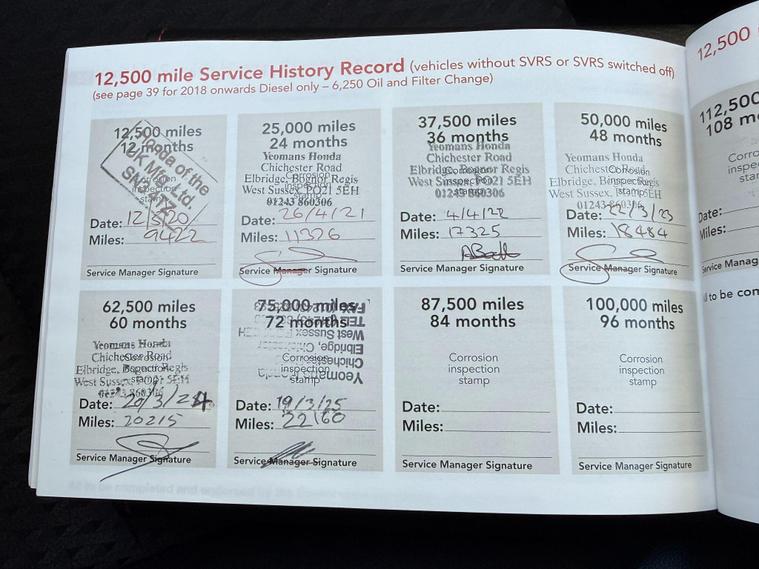 12,500 mile Service History Record (vehicles without SVRS or SVRS switched off)
(see page 39 for 2018 onwards Diesel only – 6,250 Oil and Filter Change)
12,500 miles
12 months
Honda of the
UK Mfg. Ltd.
Corrosion
inspection
stamp
Date:
Miles: 9422
Service Manager Signature
25,000 miles
24 months
Yeomans Honda
Chichester Road
Elbridge, Bognor Regis
West Sussex, PO21 5EH
01243 860306
Corrosion
inspection
stamp
Date: 26/4/21
Miles: 11326
Service Manager Signature
37,500 miles
36 months
Yeomans Honda
Chichester Road
Elbridge, Bognor Regis
West Sussex, PO21 5EH
01243 860306
Date: 4/4/22
Miles: 17325
Service Manager Signature
50,000 miles
48 months
Yeomans Honda
Chichester Road
Elbridge, Bognor Regis
West Sussex, PO21 5EH
01243 860306
Corrosion
inspection
stamp
Date: 22/3/23
Miles: 18484
Service Manager Signature
62,500 miles
60 months
Yeomans Honda
Chichester Road
Elbridge, Bognor Regis
West Sussex PO21 5EH
01243 860306
Date: 20/3/24
Miles: 20215
Service Manager Signature
75,000 miles
72 months
Yeomans Honda
Chichester
Elbridge,
West Sussex
Corrosion
inspection
stamp
Date: 19/3/25
Miles: 22160
Service Manager Signature
87,500 miles
84 months
Corrosion
inspection
stamp
Date:
Miles:
Service Manager Signature
100,000 miles
96 months
Corrosion
inspection
stamp
Date:
Miles:
Service Manager Signature
12,500
112,500
108 m
Corro
inspe
star
Date:
Miles:
Service Manager
to be com